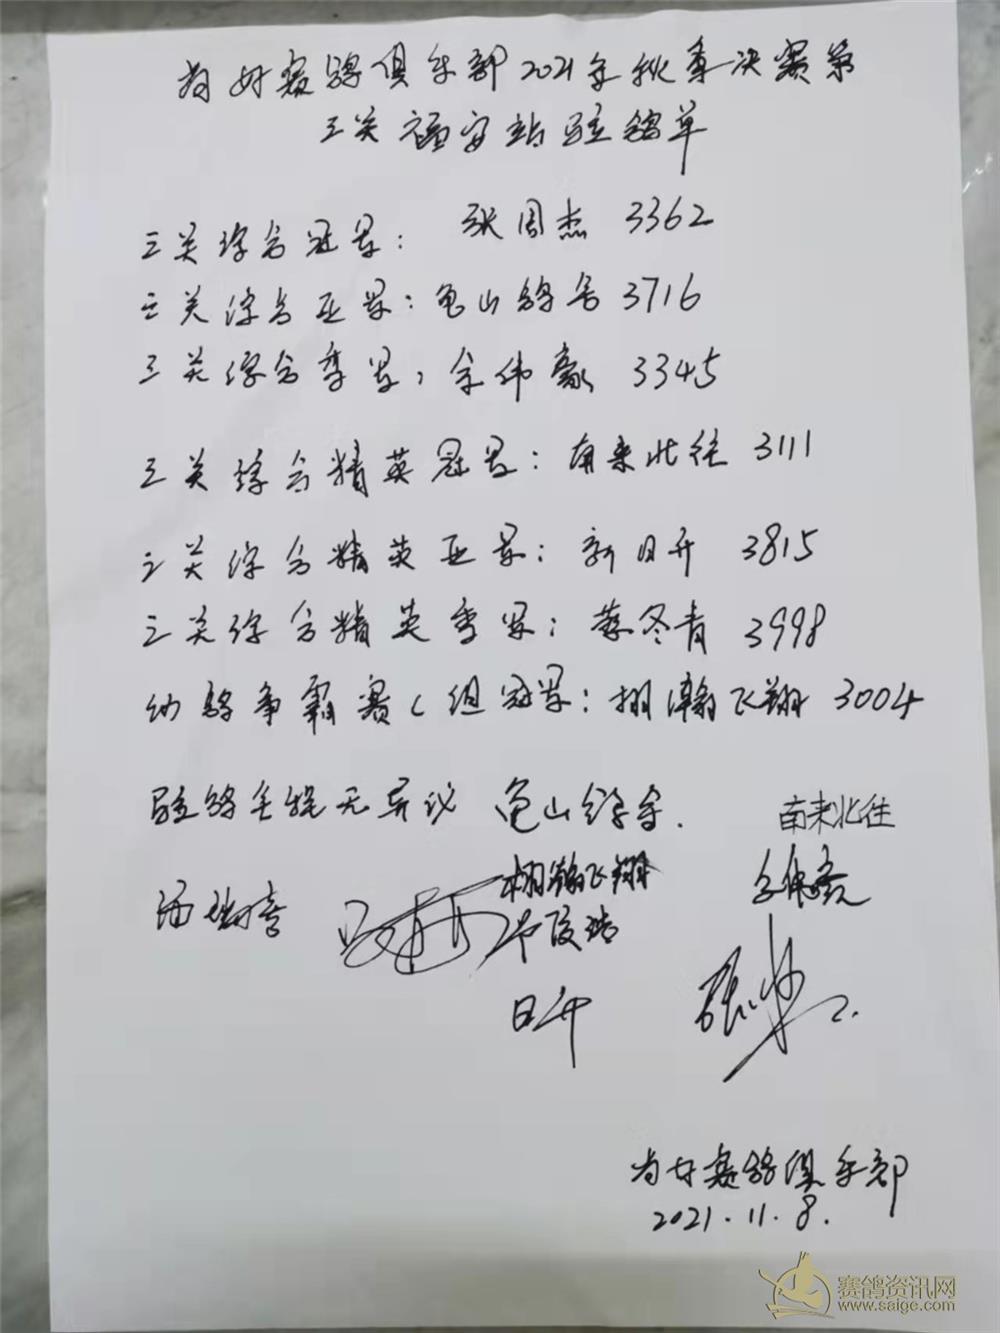 为好赛鸽俱乐部2021年秋季决赛第
三关福安站验鸽单
三关综合冠军：张周杰 3362
三关综合亚军：龟山鸽舍 3716
三关综合季军：余伟豪 3345
三关综合精英冠军：南来北往 3111
三关综合精英亚军：新日升 3815
三关综合精英季军：蔡冬青 3998
幼鸽争霸赛C组冠军：栩瀚飞翔 3004
验鸽全程无异议 龟山鸽舍.
南来北往
栩瀚飞翔
日升
为好赛鸽俱乐部
2021.11.8.
赛鸽资讯网
www.saige.com